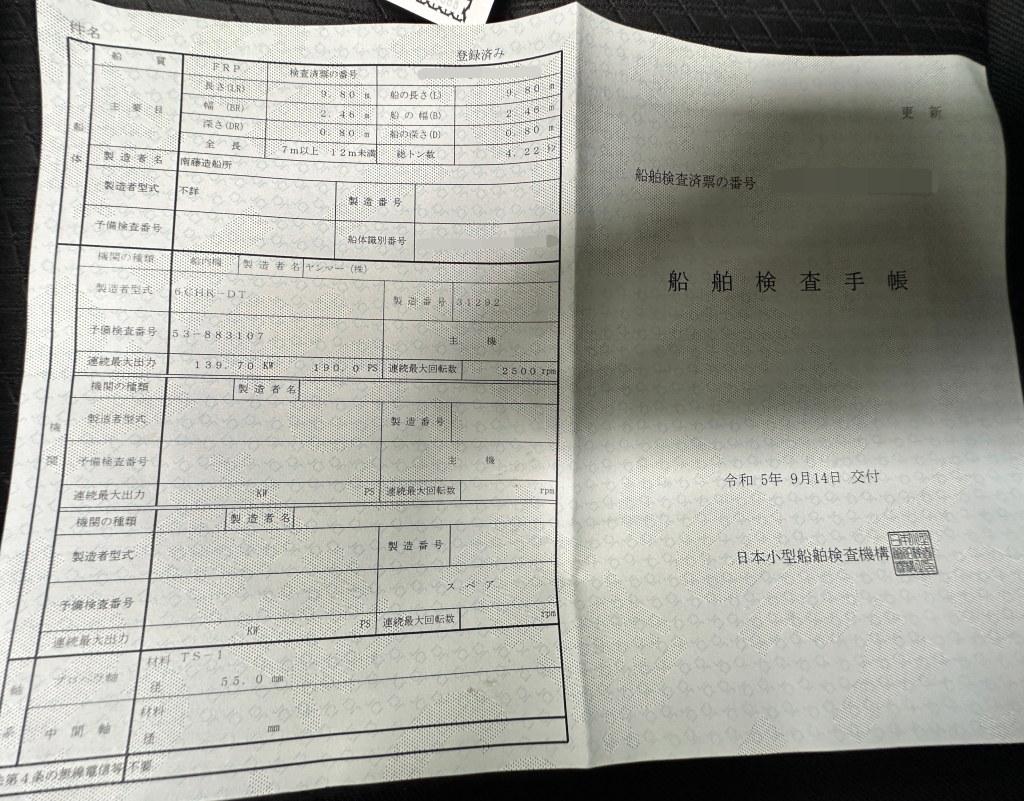 件名
登録済み
船質 FRP 検査済票の番号
船体
主要目 長さ(LR) 9.80 m 船の長さ(L) 9.80 m
幅 (BR) 2.46 m 船の幅(B) 2.46 m
深さ(DR) 0.80 m 船の深さ(D) 0.80 m
全長 7m以上 12m未満 総トン数 4.22 トン
製造者名 南藤造船所
製造者型式 不詳 製造番号
予備検査番号 船体識別番号
機関
機関の種類 船内機 製造者名 ヤンマー(株)
製造者型式 6CHK-DT 製造番号 31292
予備検査番号 53-883107 主機
連続最大出力 139.70 KW 190.0 PS 連続最大回転数 2500 rpm
機関の種類 製造者名
製造者型式 製造番号
予備検査番号 主機
連続最大出力 KW PS 連続最大回転数 rpm
機関の種類 製造者名
製造者型式 製造番号
予備検査番号 スペア
連続最大出力 KW PS 連続最大回転数 rpm
軸系
プロペラ軸 材料 TS-1
径 55.0 mm
中間軸 材料
径 mm
法第4条の無線電信等 不要
更新
船舶検査済票の番号
船舶検査手帳
令和 5年 9月14日 交付
日本小型船舶検査機構